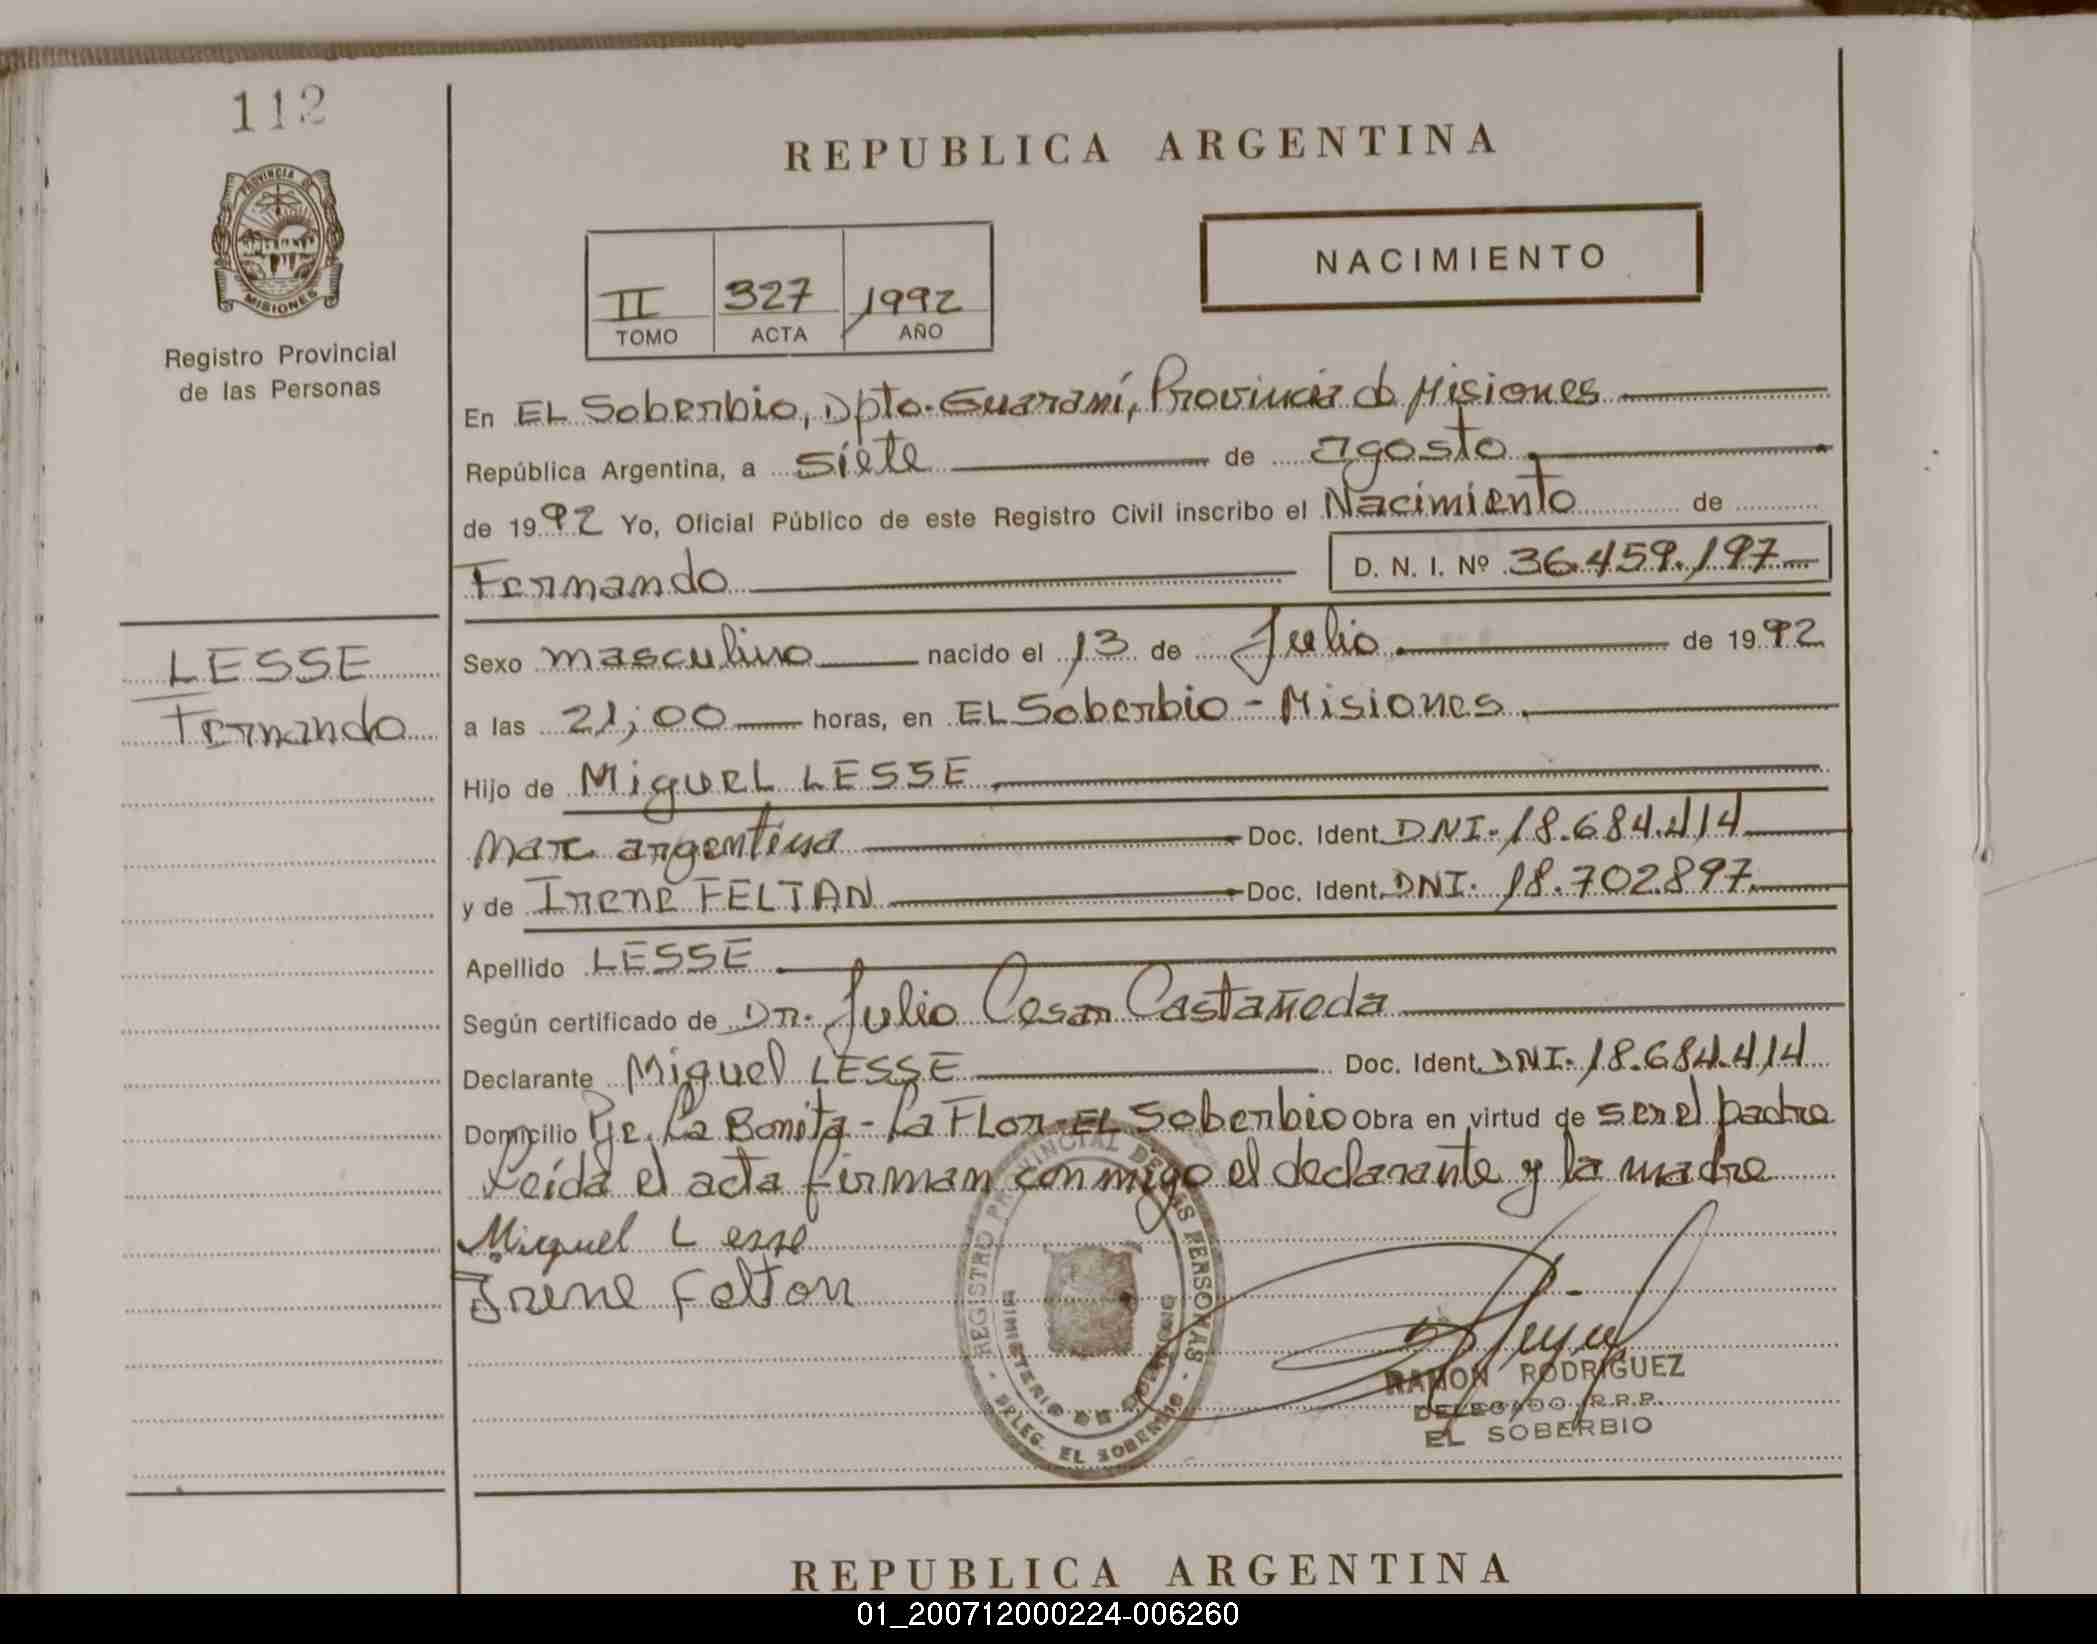 112
PROVINCIA DE
MISIONES
Registro Provincial
de las Personas
LESSE
Fernando
REPUBLICA ARGENTINA
NACIMIENTO
II 327 1992
TOMO ACTA AÑO
En EL Soberbio, Dpto. Guaraní, Provincia de Misiones
República Argentina, a siete de agosto
de 1992 Yo, Oficial Público de este Registro Civil inscribo el Nacimiento de
Fernando D. N. I. Nº 36.459.197
Sexo masculino nacido el 13 de Julio de 1992
a las 21;00 horas, en EL Soberbio - Misiones
Hijo de Miguel LESSE
Nac argentina Doc. Ident. DNI. 18.684.414
y de Irene FELTAN Doc. Ident. DNI. 18.702.897
Apellido LESSE
Según certificado de Dr. Julio Cesar Castañeda
Declarante Miguel LESSE Doc. Ident. DNI. 18.684.414
Domicilio Pje. La Bonita - La Flor - EL Soberbio Obra en virtud de ser el padre
Leída el acta firman conmigo el declarante y la madre
Miguel Lesse
Irene Felton
REGISTRO PROVINCIAL DE LAS PERSONAS
MINISTERIO DE GOBIERNO
- DELEG. EL SOBERBIO -
RAMON RODRIGUEZ
DELEGADO R.R.P.
EL SOBERBIO
REPUBLICA ARGENTINA
01_200712000224-006260